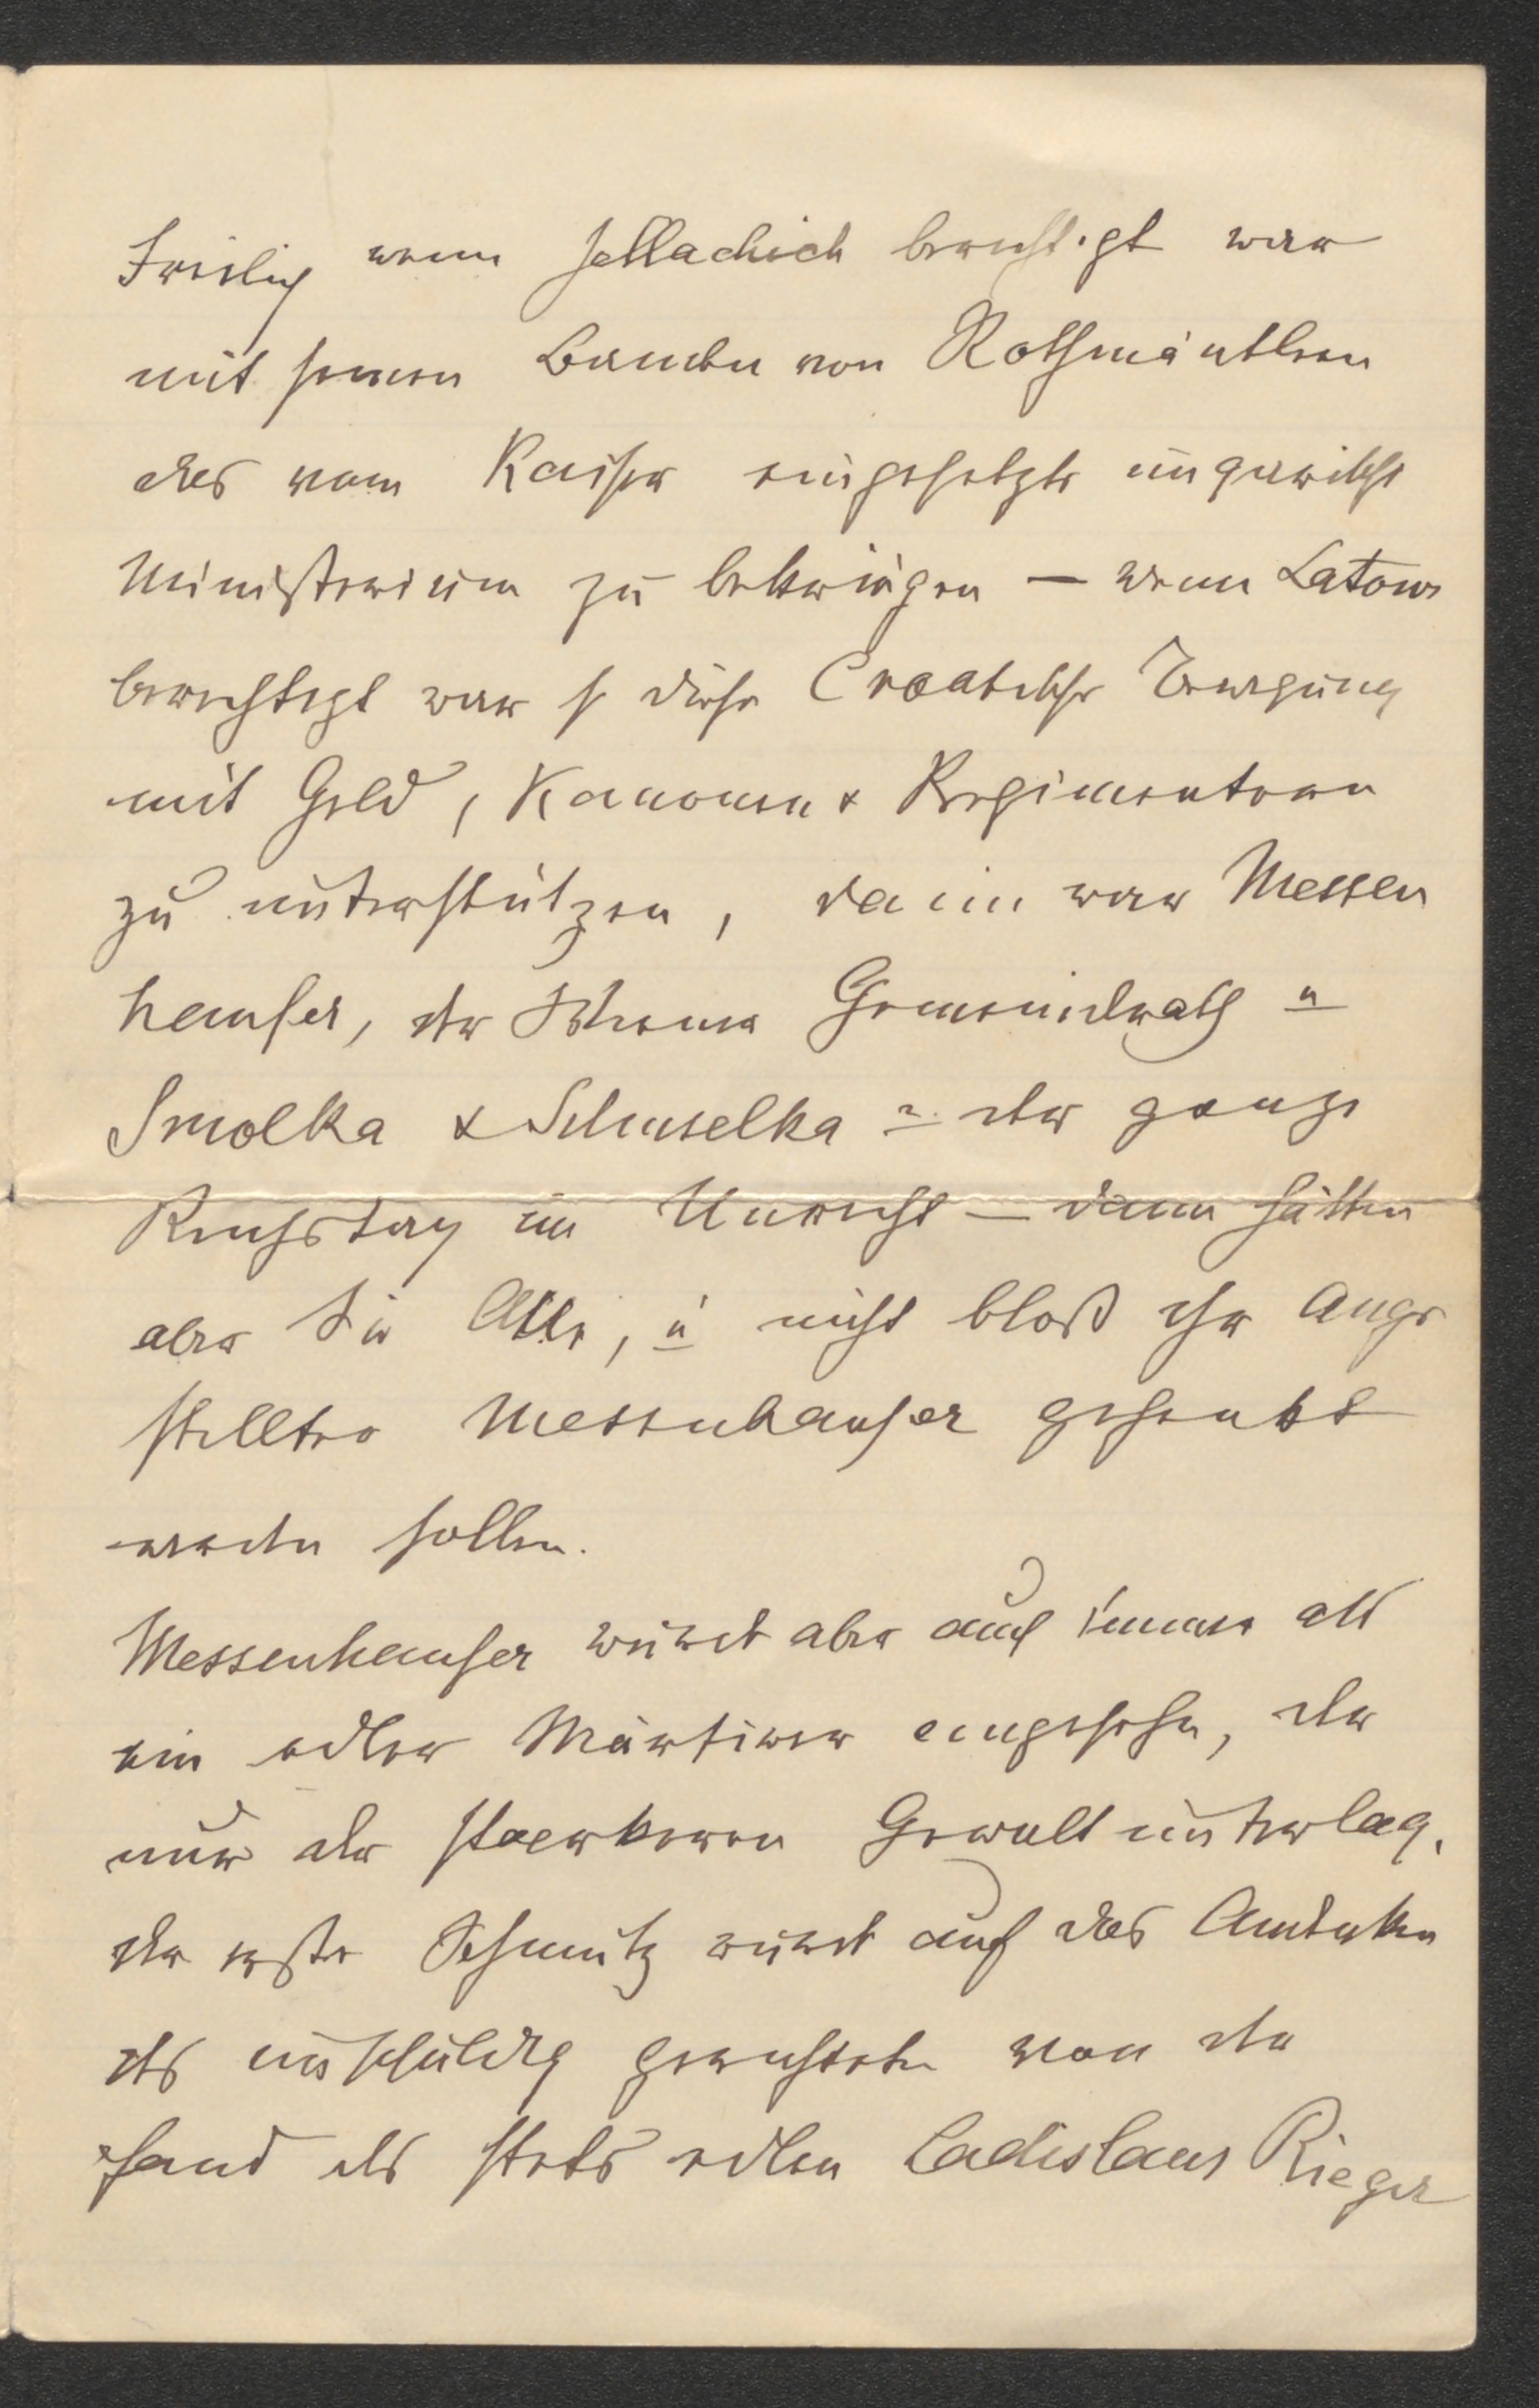 Freilich wenn Jellachich berechtigt war
mit seinen Banden von Rothmäntlern
das vom Kaiser eingesetzte ungarische
Ministerium zu bekriegen — wenn Latour
berechtigt war diese Croatische Bewegung
mit Geld, Kanonen & Regimentern
zu unterstützen, dann war Messen
hauser, der Wiener Gemeindrath u
Smolka & Schuselka u. der ganze
Reichstag im Unrecht — dann hätten
aber Sie Alle, u nicht bloß ihr Ange
stellter Messenhauser gehenkt
werden sollen.
Messenhauser wurde aber auch immer als
ein edler Märtirer angesehen, der
nur der staerkeren Gewalt unterlag.
der erste Schmutz wurde auf das Andenken
des unschuldig gerichteten von der
Hand des stets edlen Ladislaus Rieger